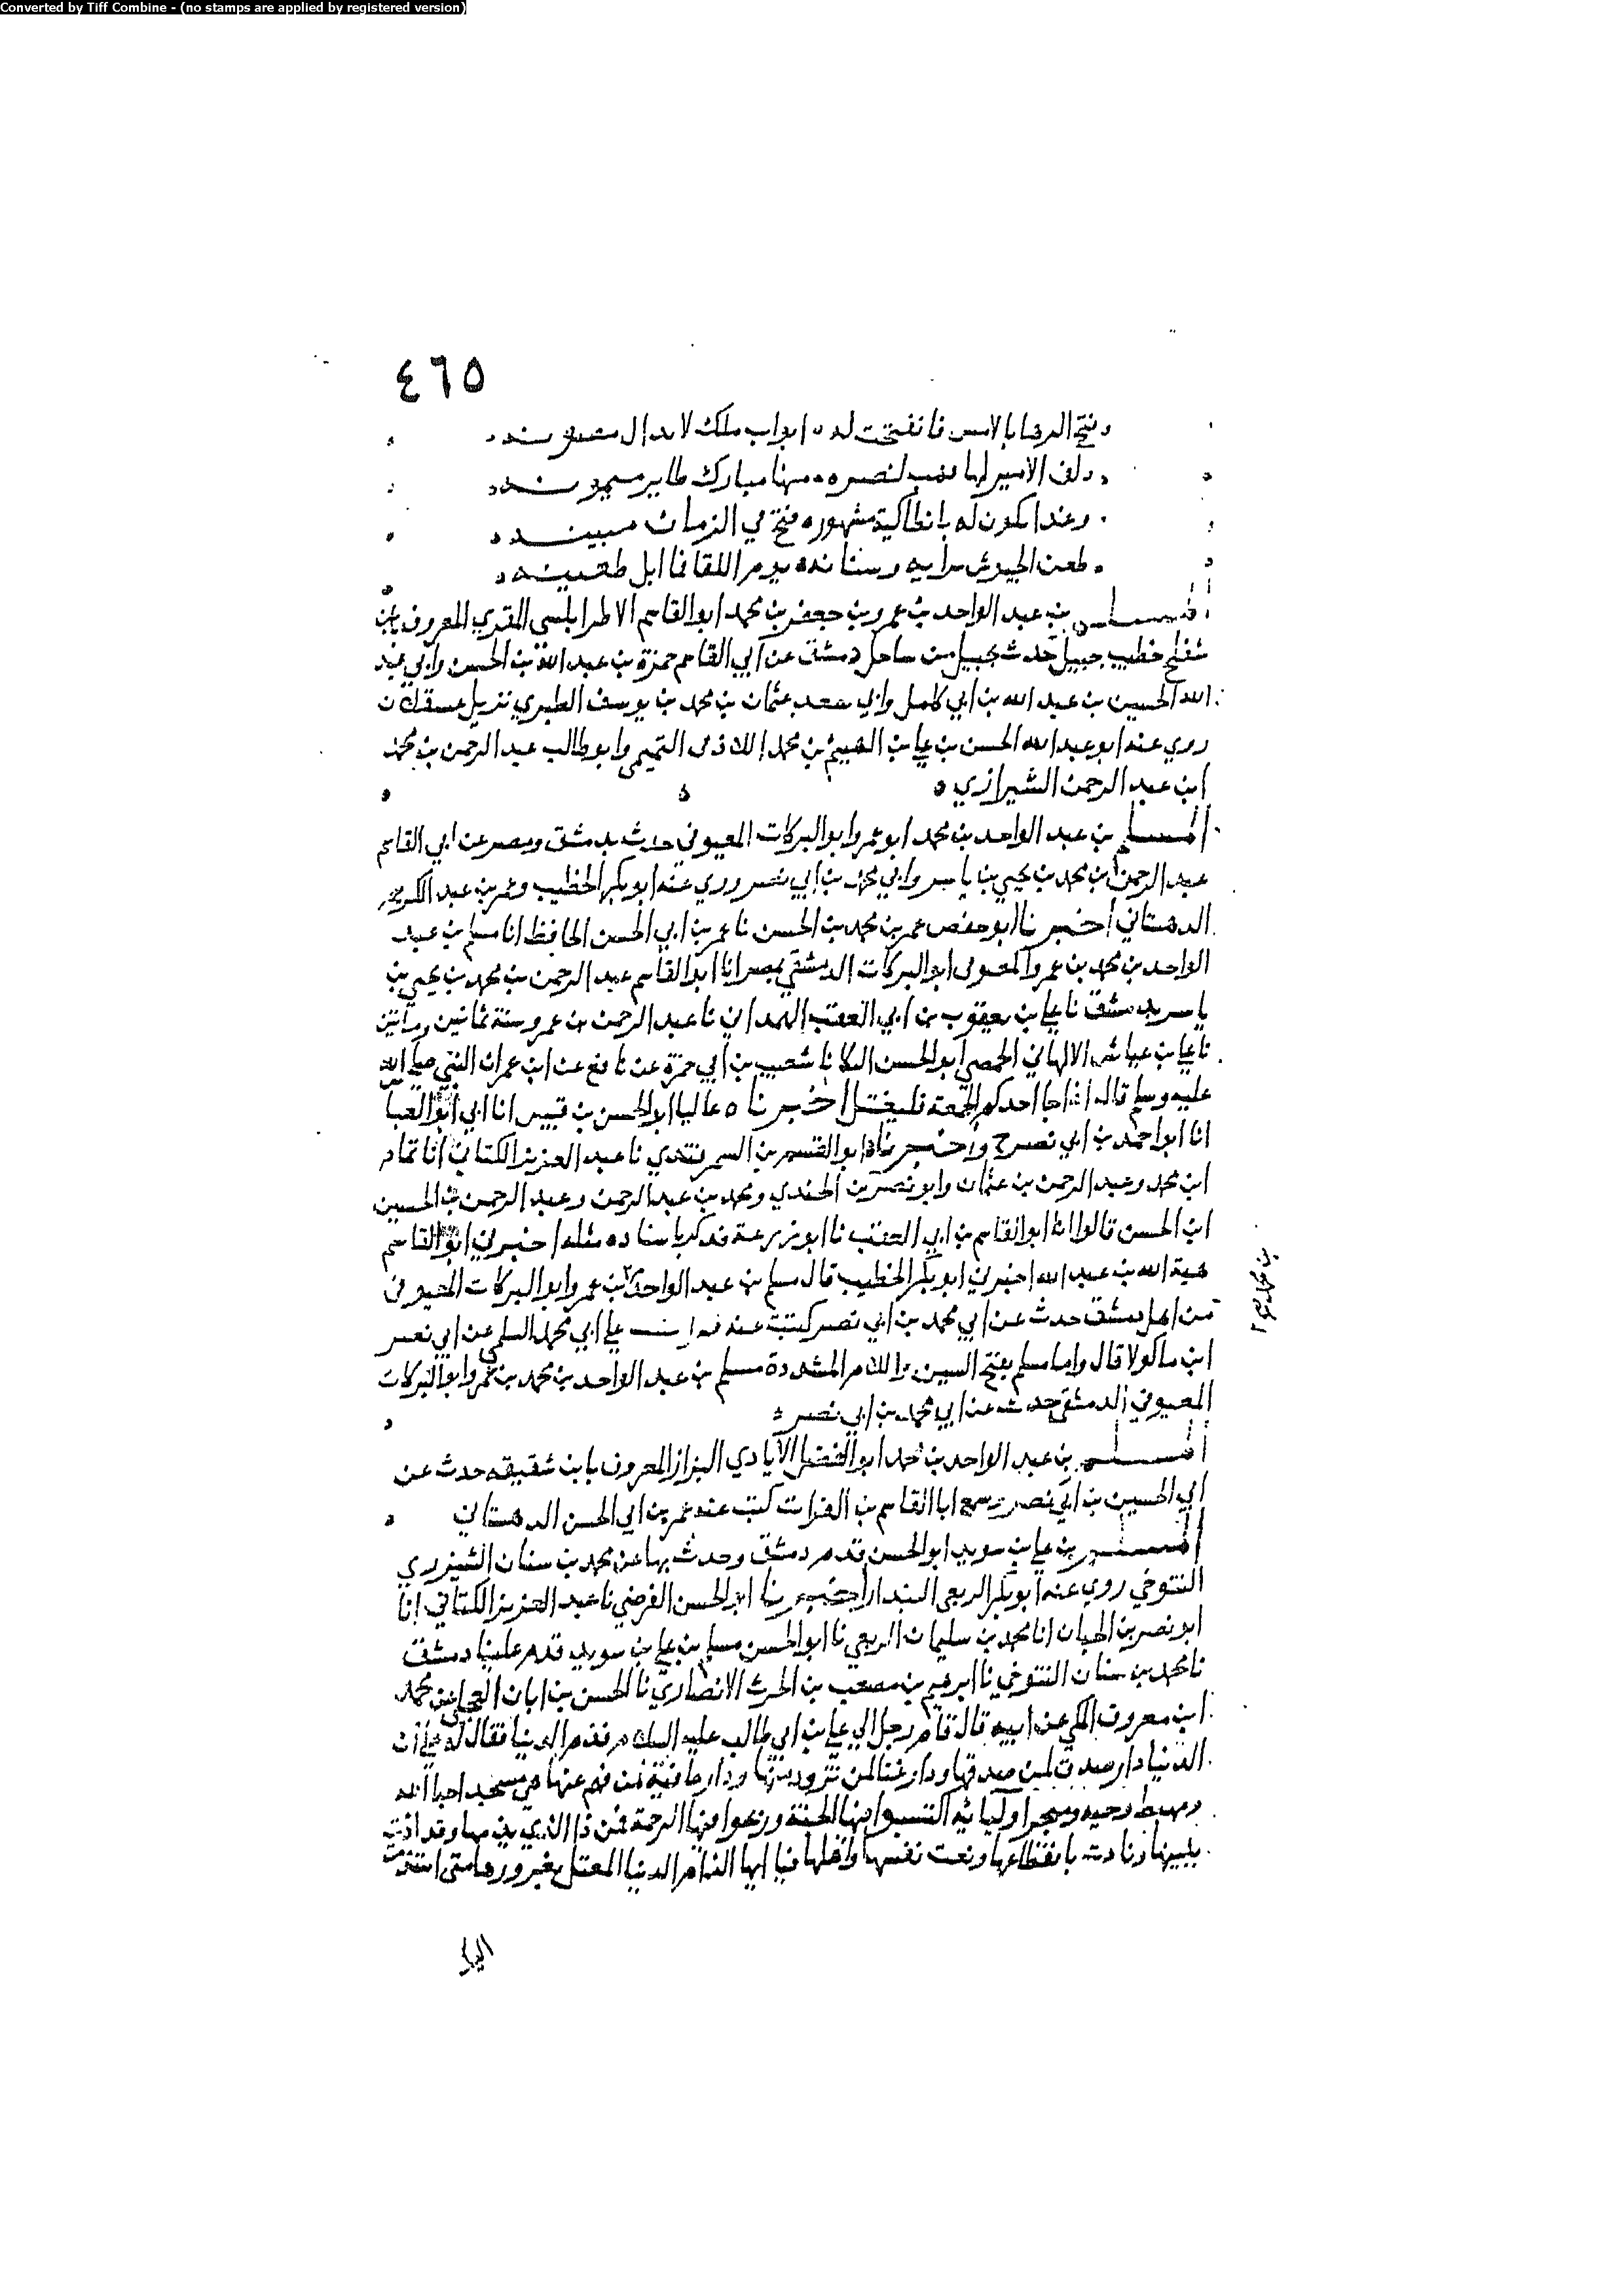 Converted by Tiff Combine - (no stamps are applied by registered version)
٤٦٥
وفتح الرها بالامس فانفتحت له ابواب ملك لا يدال
دلف الامير لها لنصره منها مبارك طاير
وغدا يكون له بانطاكية مشهوره فتح في الزمان مبينه
طعن الجيوش برايه وسنانه يوم اللقا فما ابل طعينه
المسلم بن عبد الواحد بن عمرو بن جعفر بن محمد ابو القاسم الاطرابلسي المقري المعروف بابن
شفلح خطيب جبيل حدث بجبيل من ساحل دمشق عن ابي القاسم حمزة بن عبد الله بن الحسن وابي عبد
الله الحسين بن عبد الله بن ابي كامل وابي سعد عثمان بن محمد بن يوسف الطبري نزيل عسقلان
روي عنه ابو عبد الله الحسن بن علي بن الهيثم بن محمد التميمي وابو طالب عبد الرحمن بن محمد
ابن عبد الرحمن الشيرازي
المسلم بن عبد الواحد بن محمد ابو عمرو ابو البركات المعيوفي حدث بدمشق وبمصر عن ابي القاسم
عبد الرحمن بن محمد بن يحيي بن ياسر وابي محمد بن ابي نصر وروي عنه ابو بكر الخطيب وعمر بن عبد الكريم
الدهستاني اخبرنا ابو حفص عمر بن محمد بن الحسن نا عمر بن ابي الحسن الحافظ انا مسلم بن عبد
الواحد بن محمد بن عمرو المعيوفي ابو البركات الدمشقي بمصر انا ابو القاسم عبد الرحمن بن محمد بن يحيي بن
ياسر بدمشق نا علي بن يعقوب بن ابي العقب الهمداني نا عبد الرحمن بن عمرو سنة ثمانين وماتين
نا علي بن عياش الالهاني الحمصي ابو الحسن البكا نا شعيب بن ابي حمزة عن نافع عن ابن عمر ان النبي صلي الله
عليه وسلم قال اذا جا احدكم الجمعة فليغتسل اخبرناه عاليا ابو الحسن بن قبيس انا ابي ابو العبا
انا ابو احمد بن ابي نصر ح واخبرناه ابو القسم بن السمرقندي نا عبد العزيز الكتاني انا تمام
ابن محمد وعبد الرحمن بن عثمان وابو نصر بن الجندي ومحمد بن عبد الرحمن وعبد الرحمن بن الحسين
ابن الحسن قالوا انا ابو القاسم بن ابي العقب نا ابو زرعة فذكر باسناده مثله اخبرني ابو القاسم
هبة الله بن عبد الله اخبرني ابو بكر الخطيب قال مسلم بن عبد الواحد بن عمرو ابو البركات المعيوفي
بن محمد
من اهل دمشق حدث عن ابي محمد بن ابي نصر كتبت عنه قرات علي ابي محمد السلمي عن ابي نصر
ابن ماكولا قال واما مسلم بفتح السين واللام المشددة مسلم بن عبد الواحد بن محمد بن عمرو ابو البركات
المعيوفي الدمشقي حدث عن ابي محمد بن ابي نصر
المسلم بن عبد الواحد بن محمد ابو الفضل الايادي البزاز المعروف بابن شقيقه حدث عن
ابي الحسين بن ابي نصر وسمع ابا القاسم بن الفرات كتب عنه عمر بن ابي الحسن الدهستاني
المسلم بن علي بن سويد ابو الحسن قدم دمشق وحدث بها عن محمد بن سنان الشيزري
التنوخي روي عنه ابو بكر الربعي البندار اخبرنا ابو الحسن الفرضي نا عبد العزيز الكتاني انا
ابو نصر بن الجبان انا محمد بن سليمان الربعي نا ابو الحسن مسلم بن علي بن سويد قدم علينا دمشق
نا محمد بن سنان التنوخي نا ابرهيم بن مصعب بن الحرث الانصاري نا الحسن بن ابان العجلي عن محمد
ابن معروف المكي عن ابيه قال قام رجل الي علي بن ابي طالب عليه السلام فذم الدنيا فقال له علي ان
الدنيا دار صدق لمن صدقها ودار غنا لمن تزود منها ودار عافية لمن فهم عنها هي مسجد احبا الله
ومهبط وحيه ومتجر اوليائه اكتسبوا فيها الجنة ورجوا فيها الرحمة فمن ذا الذي يذمها وقد اذنت
ببينها ونادت بانقطاعها ونعت نفسها واهلها فيا ايها الذام الدنيا المعتل بغرورها متي استذمت
اليك